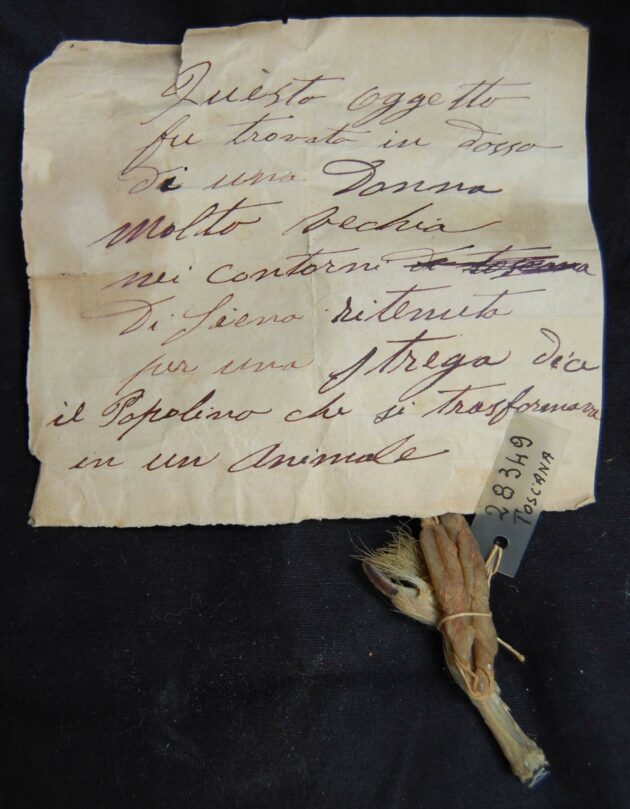 Questo oggetto
fu trovato in dosso
di una Donna
molto vechia
nei contorni
Di Siena ritenuta
per una strega dice
il Popolino che si trasformava
in un animale
28349
TOSCANA